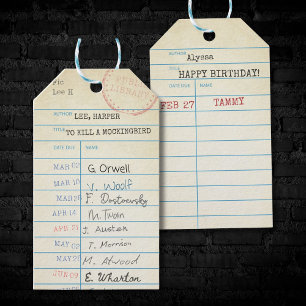 Fic
Lee H
PUBLIC
LIBRARY
AUTHOR LEE, HARPER
TITLE TO KILL A MOCKINGBIRD
DATE DUE NAME
MAR 02 G. Orwell
MAR 10 V. Woolf
MAR F. Dostoevsky
APR 14 M. Twain
APR 21 J. Austen
MAY 02 T. Morrison
MAY 26 M. Atwood
JUN 09 E. Wharton
AUTHOR Alyssa
TITLE HAPPY BIRTHDAY!
DATE DUE NAME
FEB 27 TAMMY